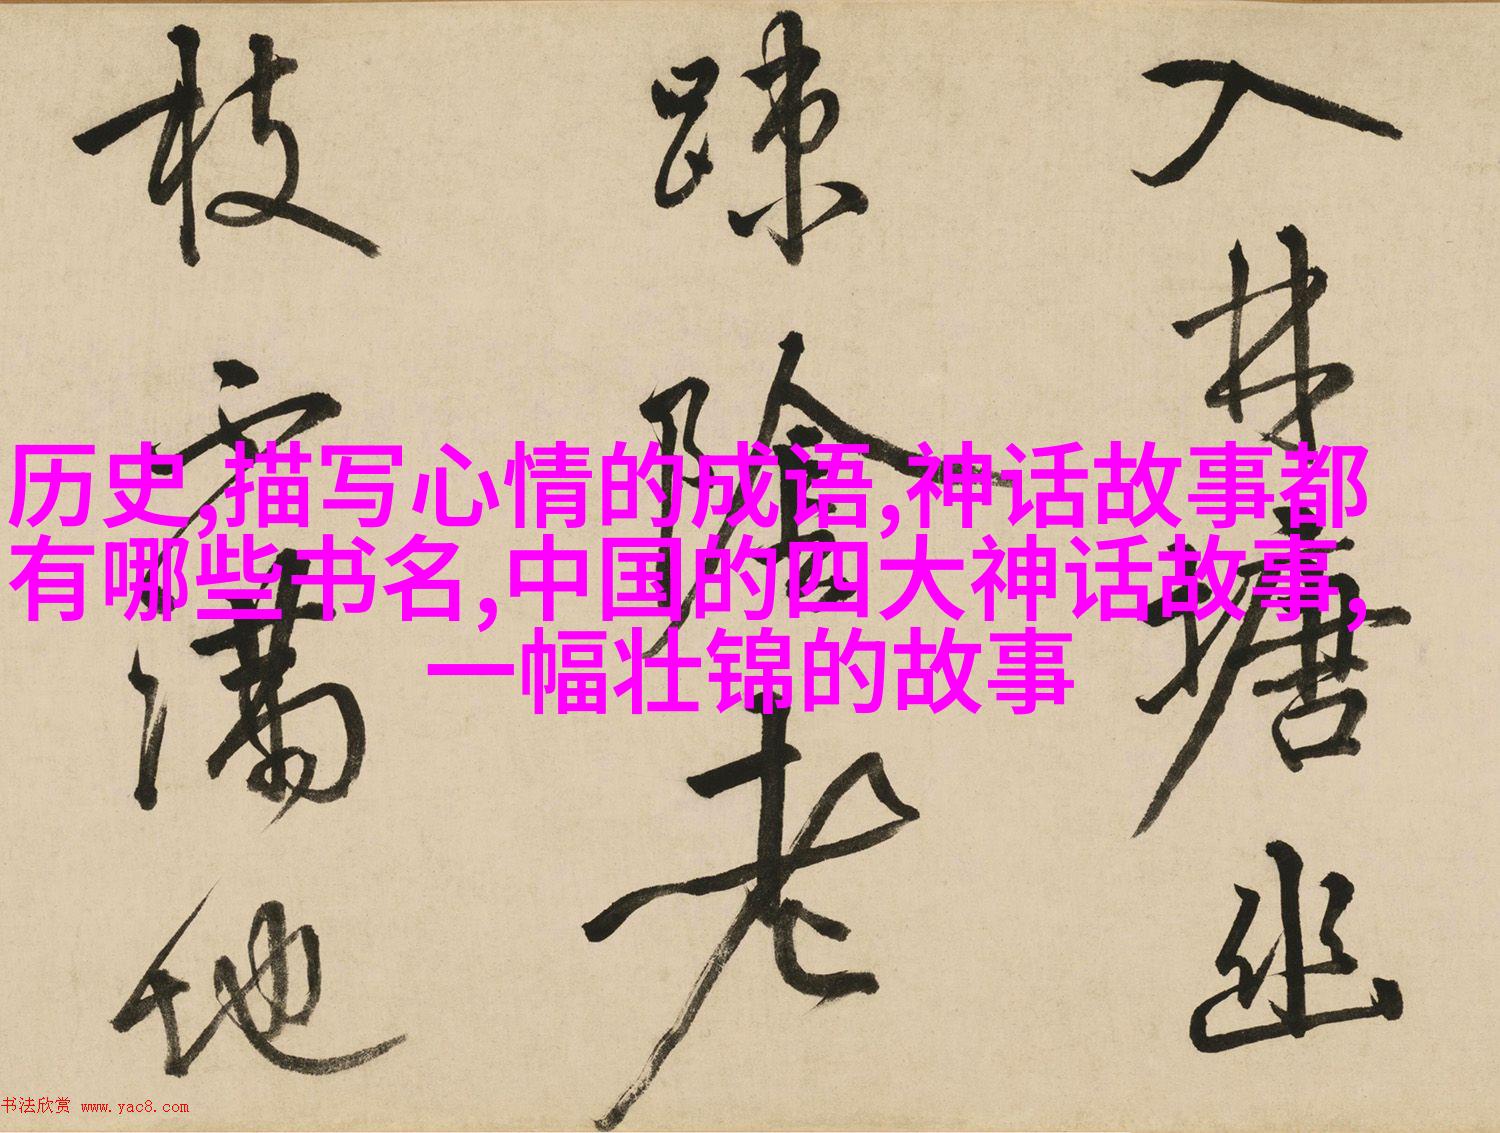 入林塘幽
踈阴老
枝雨满地
历史,描写心情的成语,神话故事都
有哪些书名,中国的四大神话故事,
一幅壮锦的故事
书法欣赏 www.yac8.com